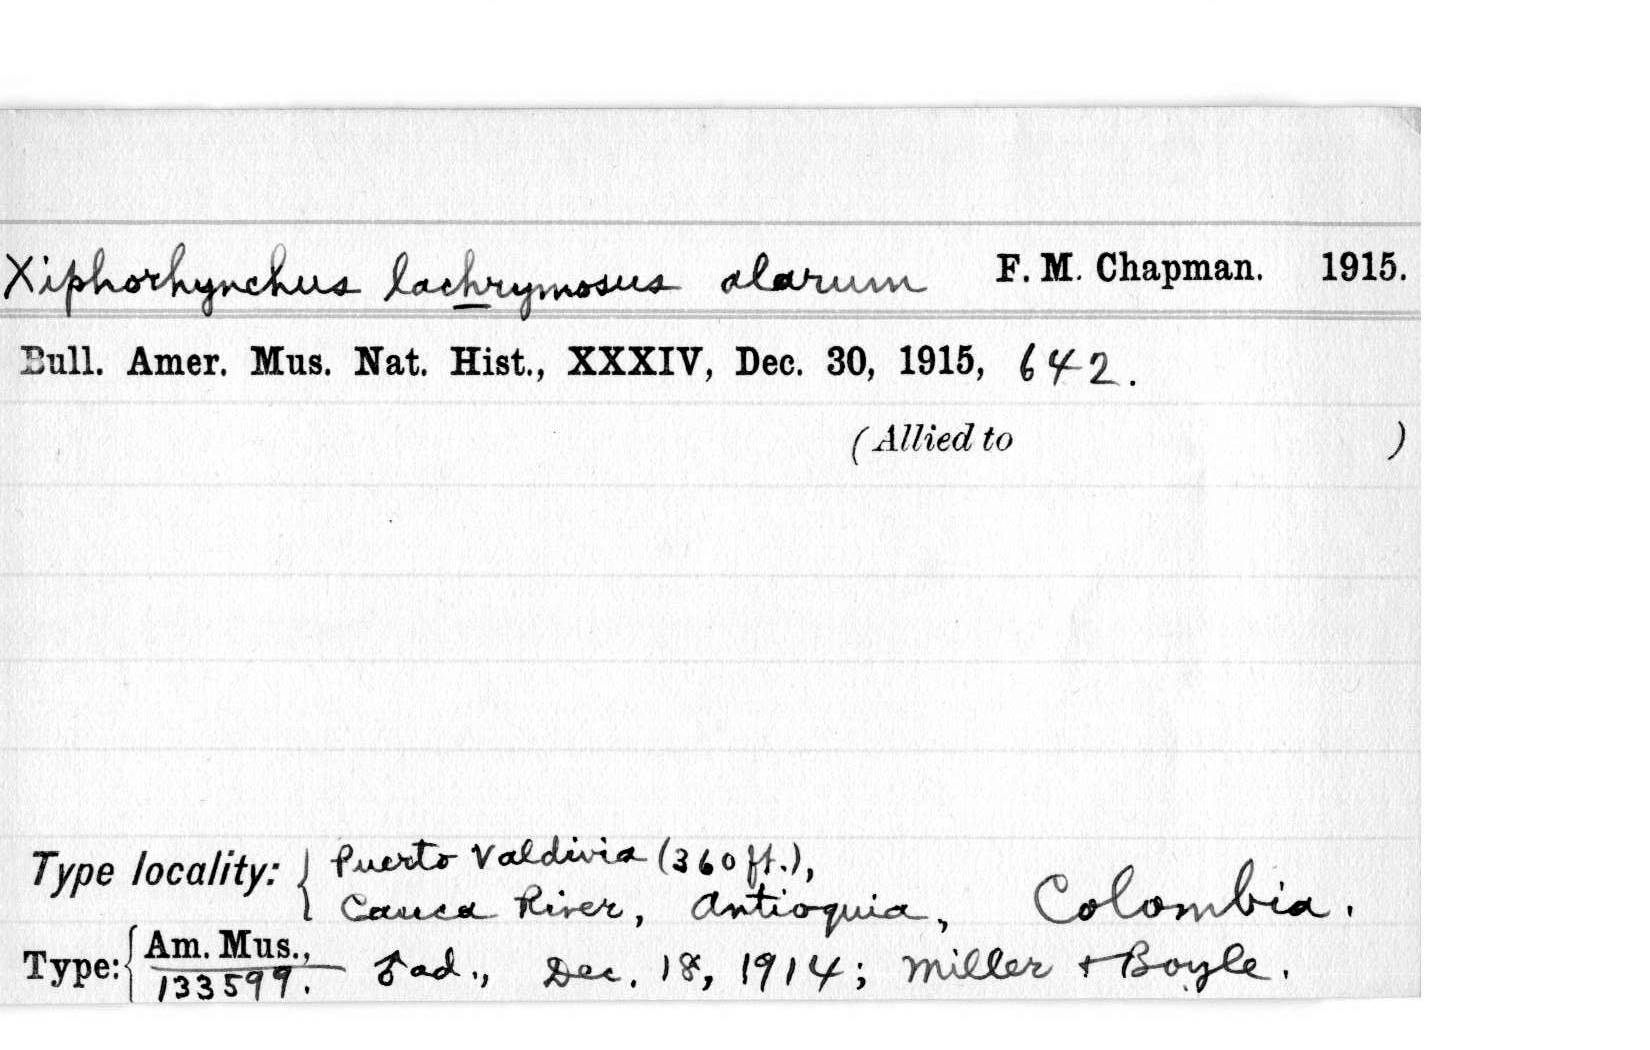 Xiphorhynchus lachrymosus alarum F. M. Chapman. 1915.
Bull. Amer. Mus. Nat. Hist., XXXIV, Dec. 30, 1915, 642.
(Allied to )
Type locality: { Puerto Valdivia (360 ft.),
Cauca River, Antioquia, Colombia.
Type: { Am. Mus.,
133599. ♂ ad., Dec. 18, 1914; Miller + Boyle.